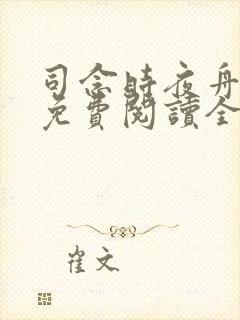 司念時夜舟
免費閱讀全
崔文